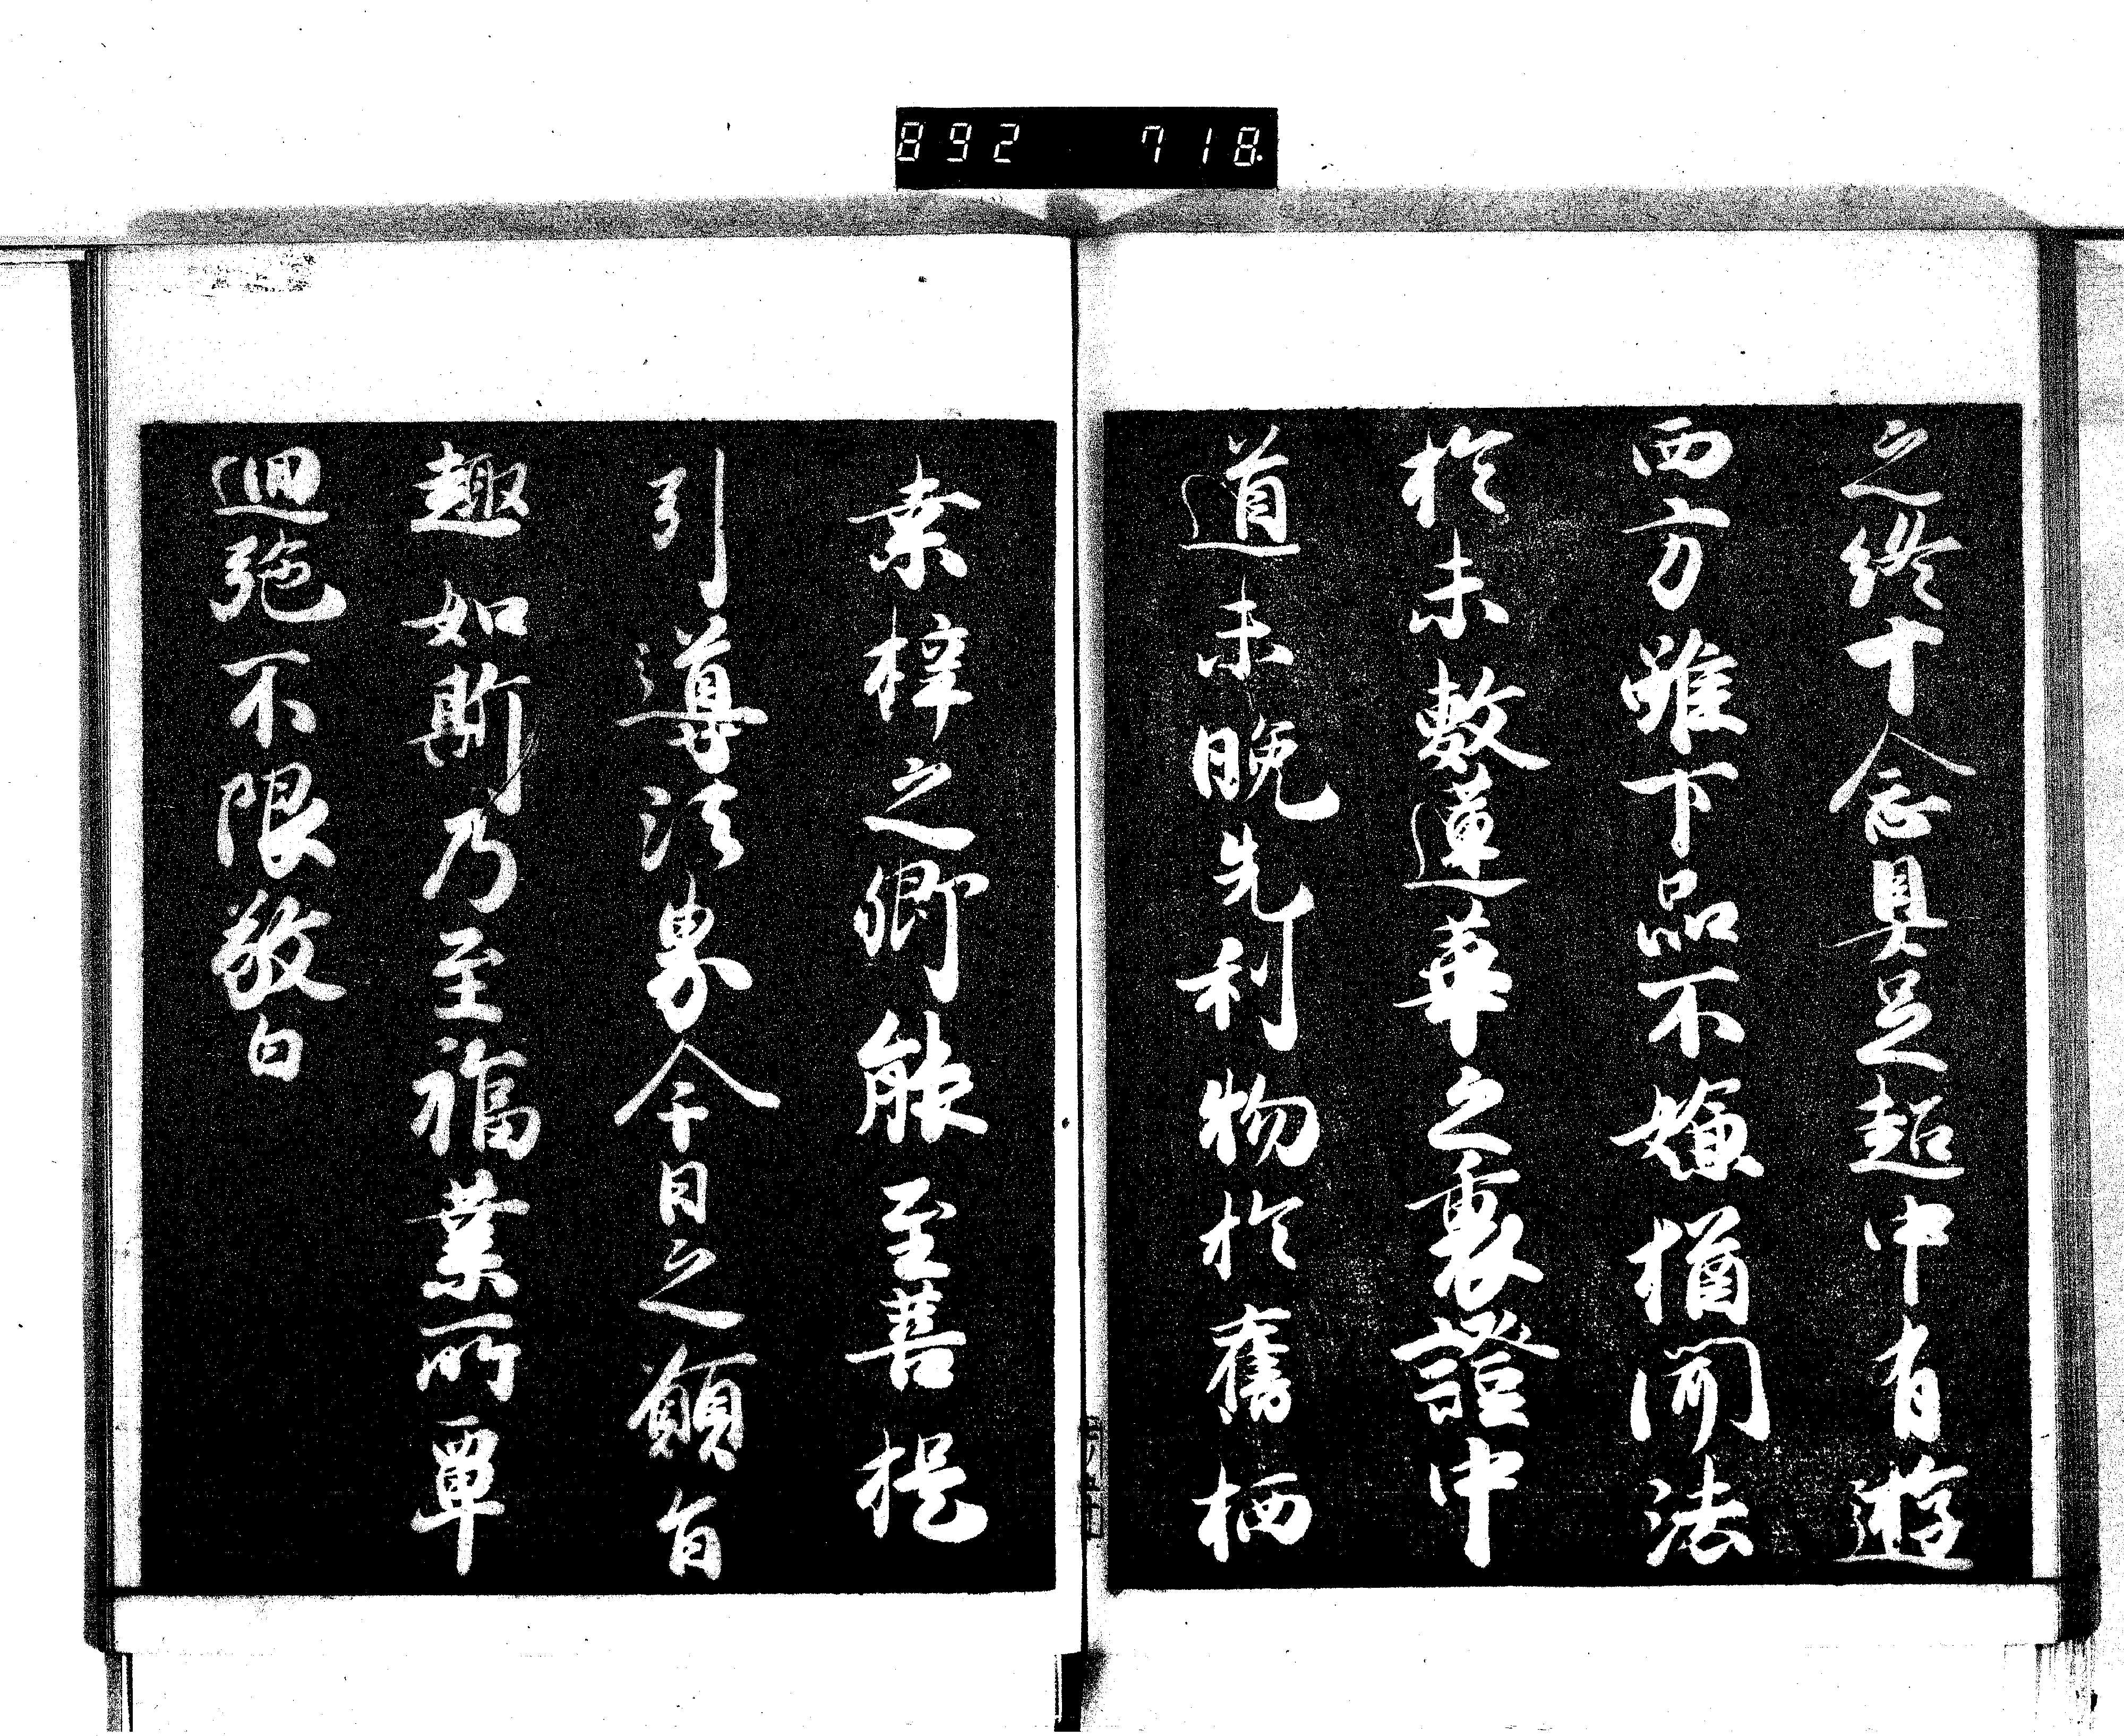 892 718
之終十念具足超中有遊
西方雖下品不嫌猶聞法
於未敷蓮華之裏證中
道未晩先利物於舊栖
桑梓之卿能至菩提
引導法界今日之願旨
趣如斯乃至福業所覃
廻施不限敬白